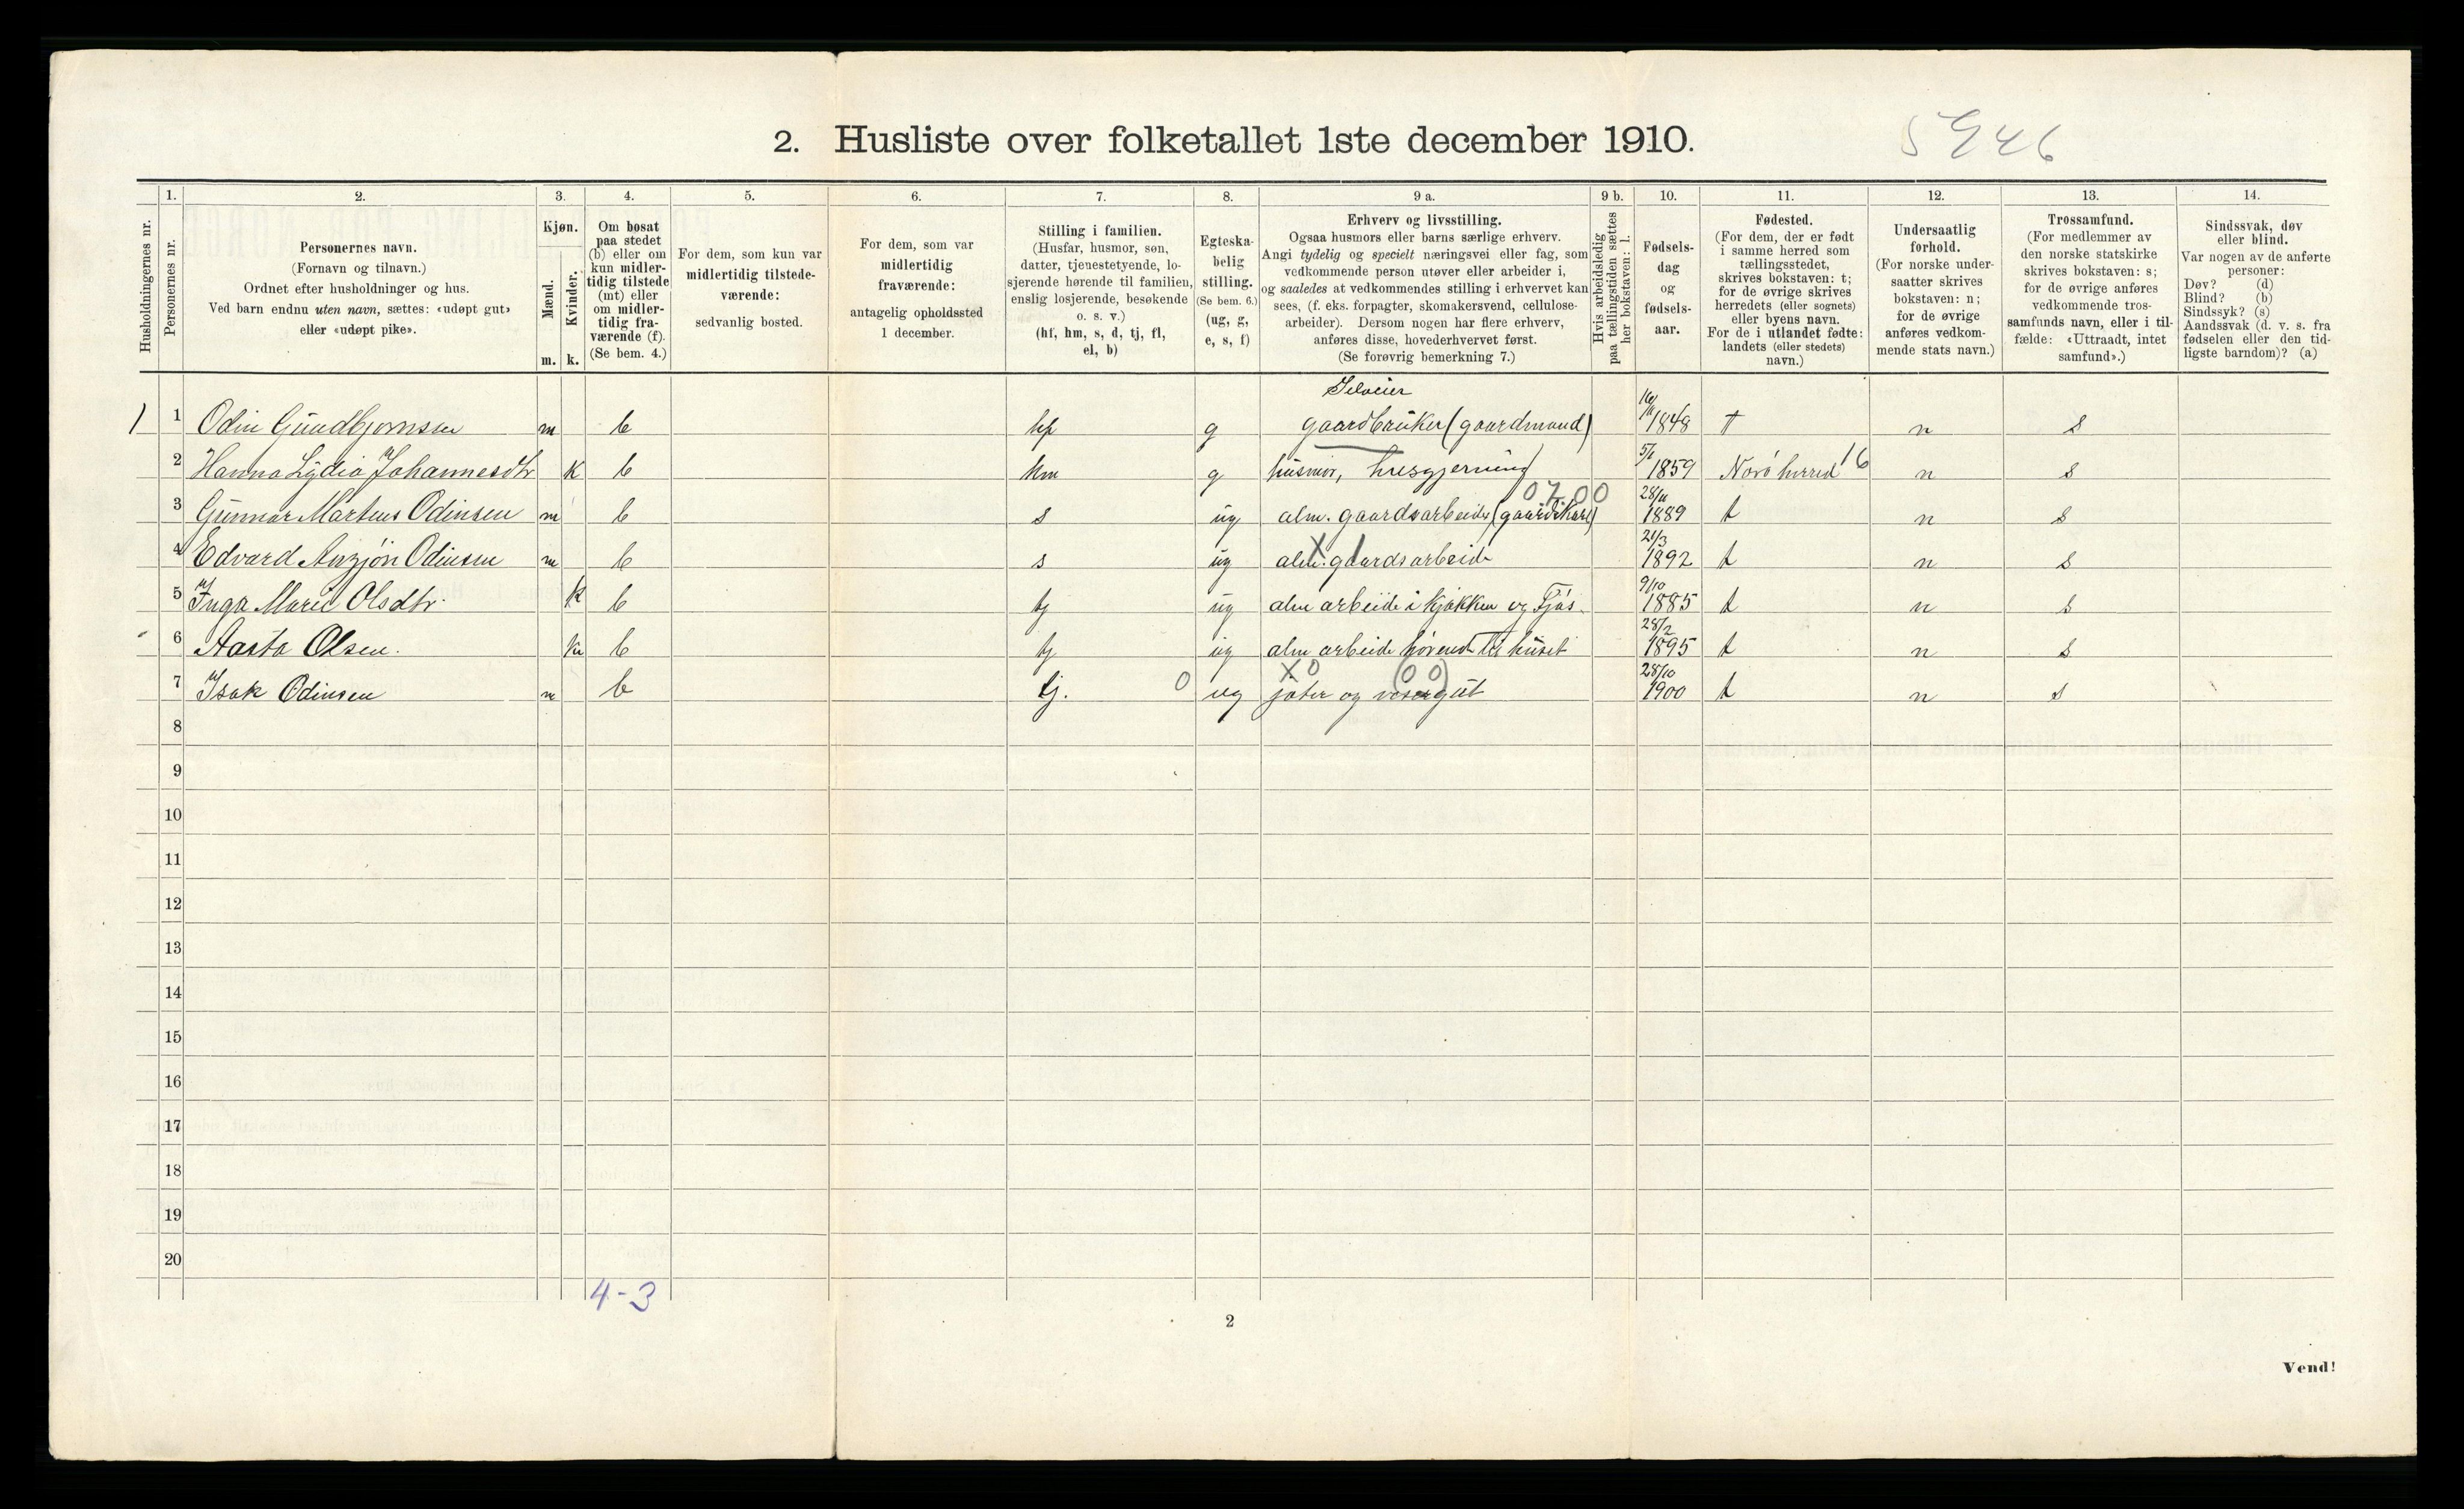 2. Husliste over folketallet 1ste december 1910.
5946
Husholdningernes nr.
1.
Personernes nr.
2.
Personernes navn.
(Fornavn og tilnavn.)
Ordnet efter husholdninger og hus.
Ved barn endnu uten navn, sættes: «udøpt gut»
eller «udøpt pike».
3.
Kjøn.
Mænd.
m.
Kvinder.
k.
4.
Om bosat
paa stedet
(b) eller om
kun midler-
tidig tilstede
(mt) eller
om midler-
tidig fra-
værende (f).
(Se bem. 4.)
5.
For dem, som kun var
midlertidig tilstede-
værende:
sedvanlig bosted.
6.
For dem, som var
midlertidig
fraværende:
antagelig opholdssted
1 december.
7.
Stilling i familien.
(Husfar, husmor, søn,
datter, tjenestetyende, lo-
sjerende hørende til familien,
enslig losjerende, besøkende
o. s. v.)
(hf, hm, s, d, tj, fl,
el, b)
8.
Egteska-
belig
stilling.
(Se bem. 6.)
(ug, g,
e, s, f)
9 a.
Erhverv og livsstilling.
Ogsaa husmors eller barns særlige erhverv.
Angi tydelig og specielt næringsvei eller fag, som
vedkommende person utøver eller arbeider i,
og saaledes at vedkommendes stilling i erhvervet kan
sees, (f. eks. forpagter, skomakersvend, cellulose-
arbeider). Dersom nogen har flere erhverv,
anføres disse, hovederhvervet først.
(Se forøvrig bemerkning 7.)
9 b.
Hvis arbeidsledig
paa tællingstiden sættes
her bokstaven: l.
10.
Fødsels-
dag
og
fødsels-
aar.
11.
Fødested.
(For dem, der er født
i samme herred som
tællingsstedet,
skrives bokstaven: t;
for de øvrige skrives
herredets (eller sognets)
eller byens navn.
For de i utlandet fødte:
landets (eller stedets)
navn.)
12.
Undersaatlig
forhold.
(For norske under-
saatter skrives
bokstaven: n;
for de øvrige
anføres vedkom-
mende stats navn.)
13.
Trossamfund.
(For medlemmer av
den norske statskirke
skrives bokstaven: s;
for de øvrige anføres
vedkommende tros-
samfunds navn, eller i til-
fælde: «Uttraadt, intet
samfund».)
14.
Sindssvak, døv
eller blind.
Var nogen av de anførte
personer:
Døv? (d)
Blind? (b)
Sindssyk? (s)
Aandssvak (d. v. s. fra
fødselen eller den tid-
ligste barndom)? (a)
Selveier
1 1 Odin Gundbjørnssen m b hf g gaardbruker (gaardmand) 1848 t n s
2 Hanna Lydia Johannesdtr k b hm g husmor, husgjerning 5/1 1859 Nærø herred 16 n s
0700
3 Gunnar Martens Odinsen m b s ug alm. gaardsarbeide (gaardskarl) 28/11 1889 t n s
4 Edvard Odinsen m b s ug alm. gaardsarbeide 21/3 1892 t n s
5 Inga Marie Olsdtr. k b tj ug alm arbeide i kjøkken og Fjøs 9/10 1885 t n s
6 Aasta Olsen. k b tj ug alm arbeide hørende til huset 28/2 1895 t n s
X0 (00)
7 Isak Odinsen m b tj. 0 ug jæter og visergut 28/10 1900 t n s
8
9
10
11
12
13
14
15
16
17
18
19
20
4-3
2
Vend!